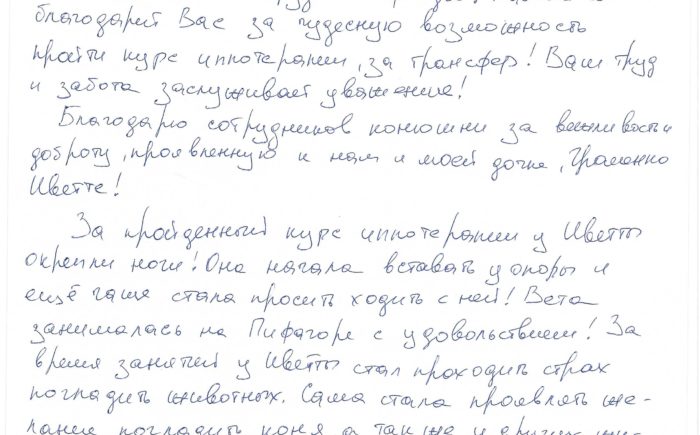 благодарит Вас за чудесную возможность
пройти курс иппотерапии, за трансфер! Ваш труд
и забота заслуживает уважение!
Благодарю сотрудников конюшни за вежливость и
доброту, проявленную к нам и моей дочке, Граненко
Иветте!
За пройденный курс иппотерапии у Иветты
окрепли ноги! Она начала вставать у опоры и
ещё чаще стала просить ходить с ней! Вета
занималась на Пифагоре с удовольствием! За
время занятий у Иветты стал проходить страх
погладить животных. Сама стала проявлять же-
лание погладить коня а так же и других